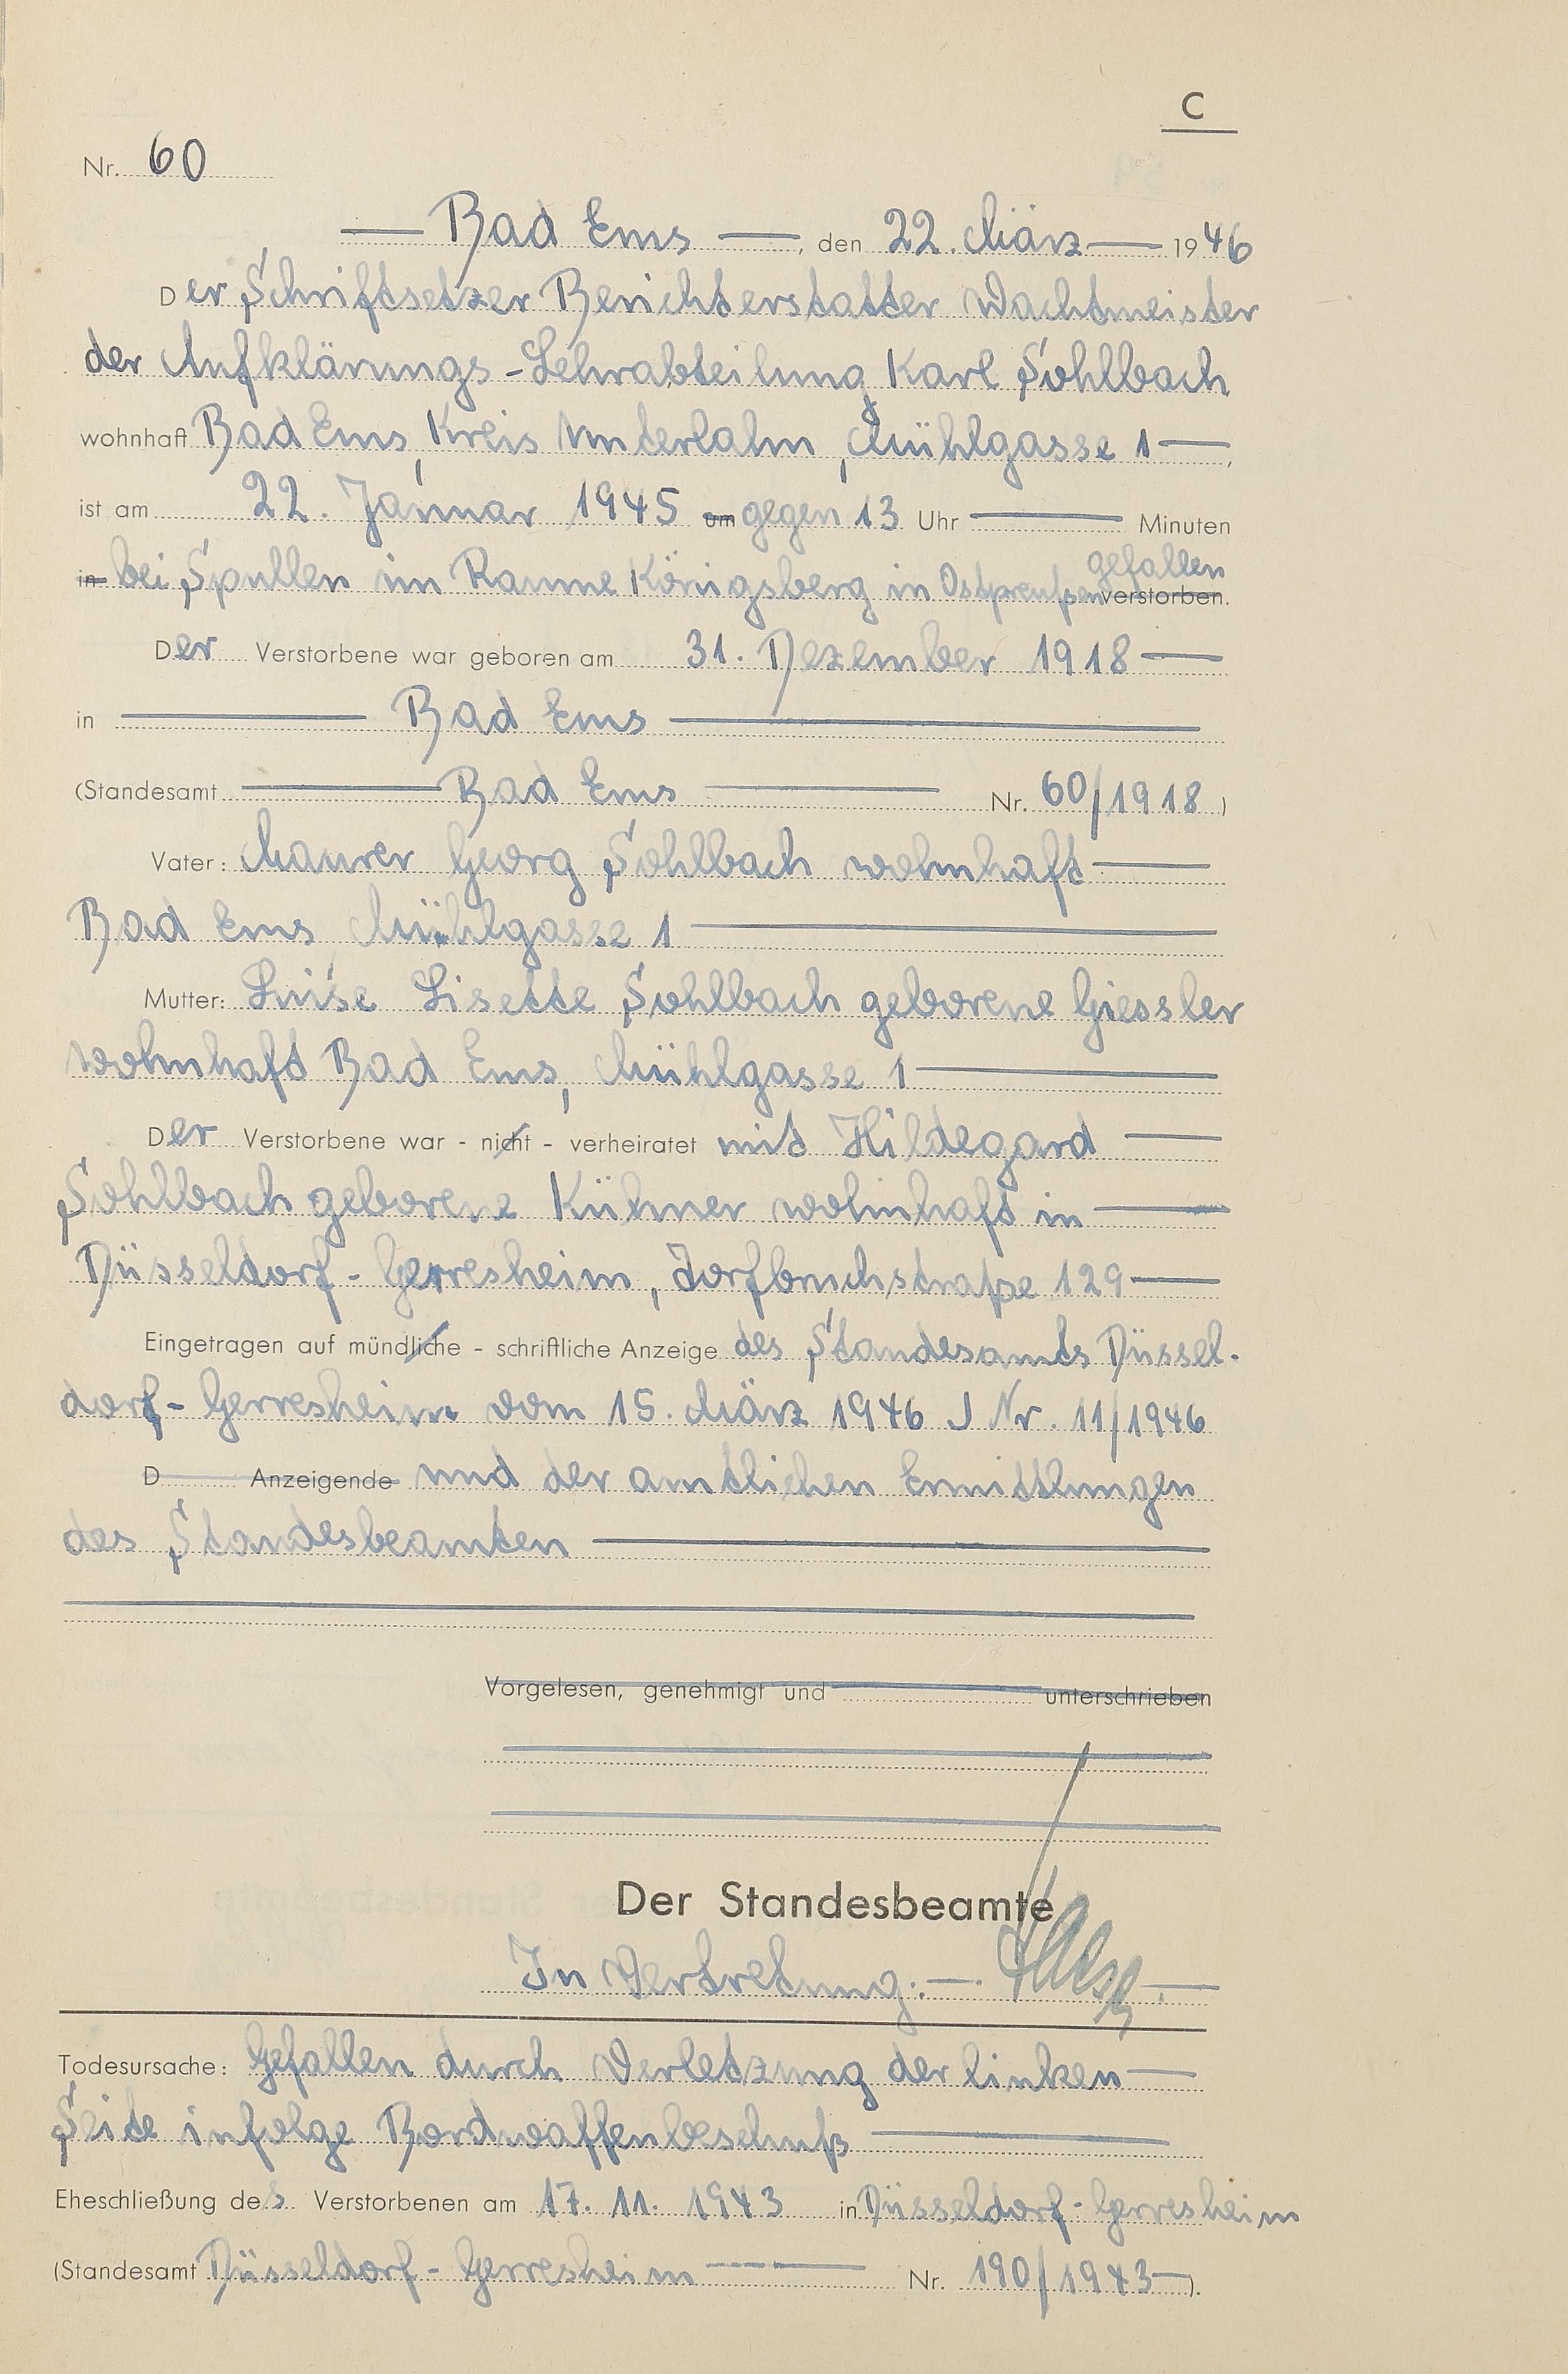 C
Nr. 60
Bad Ems, den 22. März 1946
Der Schriftsetzer Berichterstatter Wachtmeister
der Aufklärungs-Lehrabteilung Karl Sohlbach
wohnhaft Bad Ems, Kreis Unterlahn, Mühlgasse 1,
ist am 22. Januar 1945 um gegen 13 Uhr Minuten
in bei Spullen im Raume Königsberg in Ostpreußen gefallen verstorben.
Der Verstorbene war geboren am 31. Dezember 1918
in Bad Ems
(Standesamt Bad Ems Nr. 60/1918)
Vater: Maurer Georg Sohlbach wohnhaft
Bad Ems Mühlgasse 1
Mutter: Luise Lisette Sohlbach geborene Giessler
wohnhaft Bad Ems, Mühlgasse 1
Der Verstorbene war - nicht - verheiratet mit Hildegard
Sohlbach geborene Kühner wohnhaft in
Düsseldorf-Gerresheim, Torfbruchstraße 129
Eingetragen auf mündliche - schriftliche Anzeige des Standesamts Düssel-
dorf-Gerresheim vom 15. März 1946 J Nr. 11/1946
D Anzeigende und der amtlichen Ermittlungen
des Standesbeamten
Vorgelesen, genehmigt und unterschrieben
Der Standesbeamte
In Vertretung:
Todesursache: Gefallen durch Verletzung der linken
Seite infolge Bordwaffenbeschuß
Eheschließung des Verstorbenen am 17. 11. 1943 in Düsseldorf-Gerresheim
(Standesamt Düsseldorf-Gerresheim Nr. 190/1943).